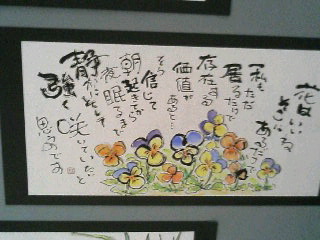 花はいいね
私もただ
居るだけで
存在する
価値が
あると…
そう
信じて
朝起きてから
夜眠るまで
静かに
強く
咲いていたいと
思うのです